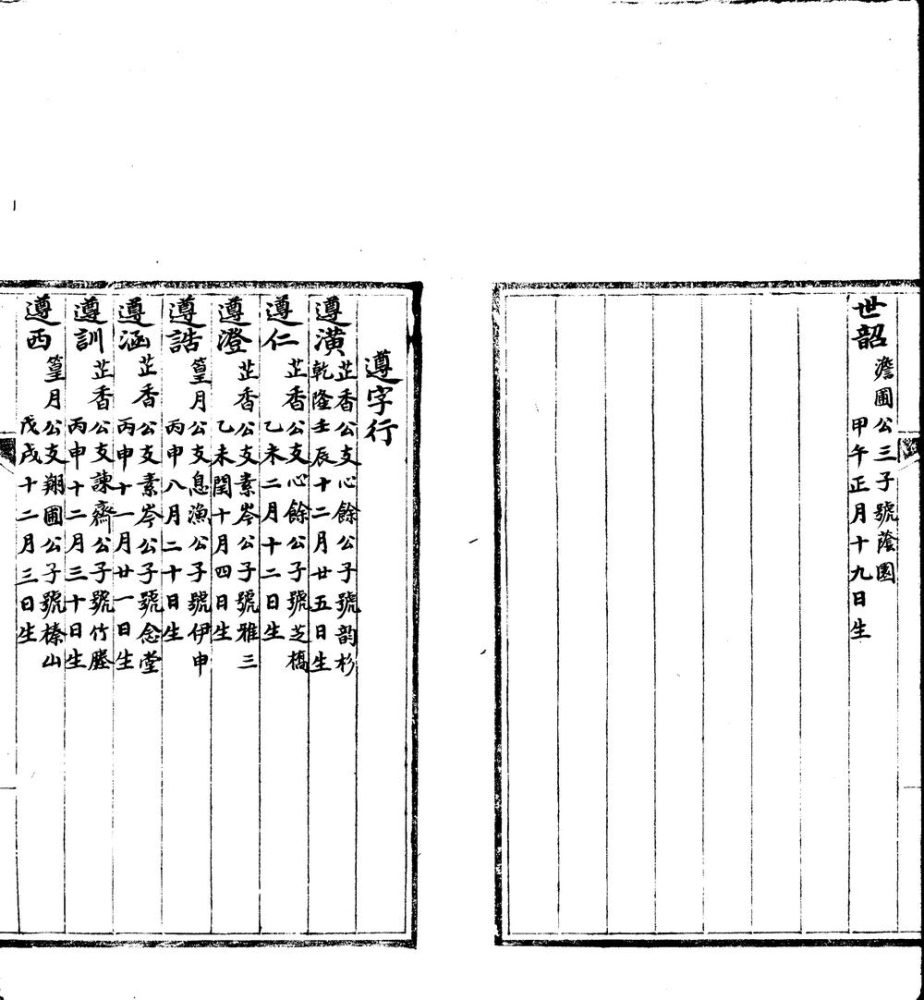 世韶 澹圃公三子號蔭園
甲午正月十九日生
遵字行
遵潢 芷香公支心餘公子號韵杉
乾隆壬辰十二月廿五日生
遵仁 芷香公支心餘公子號芝橋
乙未二月十二日生
遵澄 芷香公支素岑公子號雅三
乙未閏十月四日生
遵誥 篁月公支息漁公子號伊申
丙申八月二十日生
遵涵 芷香公支素岑公子號念堂
丙申十一月廿一日生
遵訓 芷香公支諫齋公子號竹塍
丙申十二月三十日生
遵西 篁月公支翔圃公子號榛山
戊戌十二月三日生